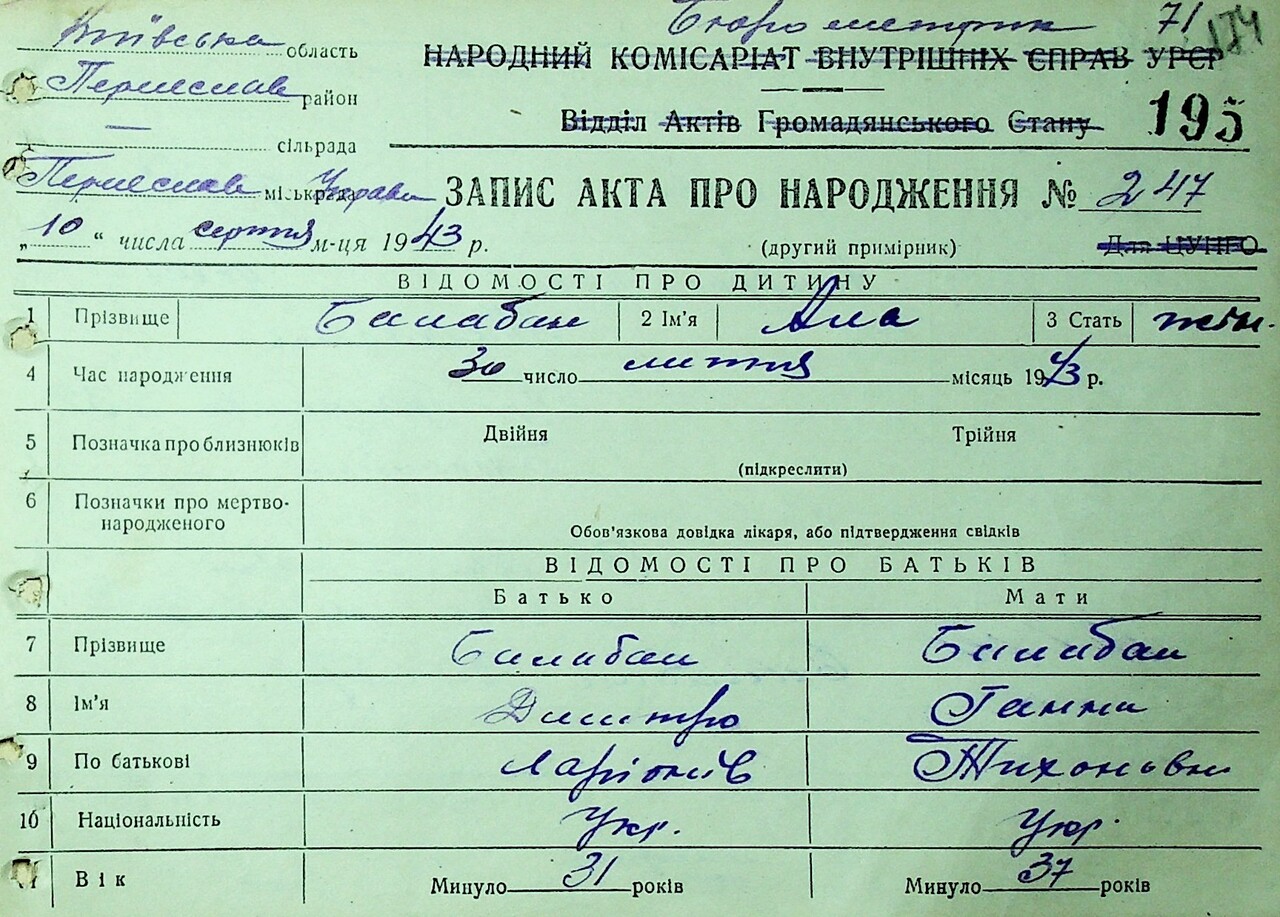 Київська область
Бюро метрик 71 174
НАРОДНИЙ КОМІСАРІАТ ВНУТРІШНІХ СПРАВ УРСР
Переслав район
Відділ Актів Громадянського Стану 195
— сільрада
Переслав міськрада Управа ЗАПИС АКТА ПРО НАРОДЖЕННЯ № 247
„10“ числа серпня м-ця 1943 р. (другий примірник) Для ЦУНГО
ВІДОМОСТІ ПРО ДИТИНУ
1 Прізвище Балабан 2 Ім'я Ала 3 Стать жін.
4 Час народження 30 число липня місяць 1943 р.
5 Позначка про близнюків Двійня Трійня
(підкреслити)
6 Позначки про мертво-
народженого
Обов'язкова довідка лікаря, або підтвердження свідків
ВІДОМОСТІ ПРО БАТЬКІВ
Батько Мати
7 Прізвище Балабан Балабан
8 Ім'я Дмитро Ганна
9 По батькові Ларіонів Тихоновна
10 Національність Укр. Укр.
11 Вік Минуло 31 років Минуло 37 років